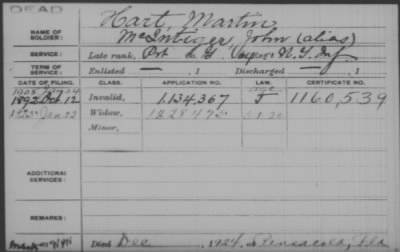 DEAD
NAME OF SOLDIER: Hart, Martin
McIntiger, John (alias)
SERVICE: Late rank, Pvt N.Y. Inf
TERM OF SERVICE: Enlisted , 1 Discharged , 1
DATE OF FILING. CLASS. APPLICATION NO. LAW. CERTIFICATE NO.
1892 Oct 12 Invalid, 1.134.367 J 1160,539
1925 Jan 23 Widow, 1228472
Minor,
ADDITIONAL SERVICES:
REMARKS:
Died Dec , 1924, at Pensacola, Fla